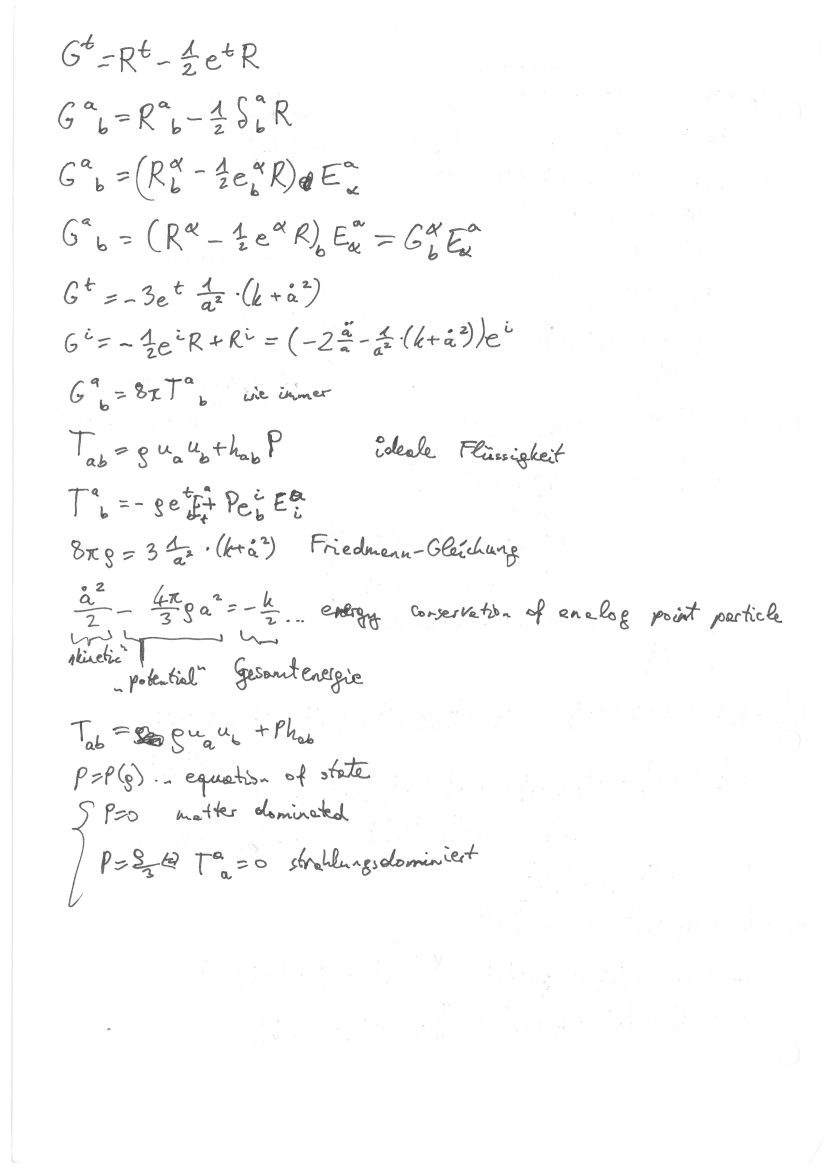 G^t = R^t - 1/2 e^t R
G^a_b = R^a_b - 1/2 δ^a_b R
G^a_b = (R^α_b - 1/2 e^α_b R) E^a_α
G^a_b = (R^α - 1/2 e^α R)_b E^a_α = G^α_b E^a_α
G^t = -3e^t 1/a² · (k + ȧ²)
G^i = -1/2 e^i R + R^i = (-2 ä/a - 1/a² · (k+ȧ²)) e^i
G^a_b = 8π T^a_b wie immer
T_ab = ρ u_a u_b + h_ab P ideale Flüssigkeit
T^a_b = -ρ e^t_b E^a_t + P e^i_b E^a_i
8πρ = 3 1/a² · (k+ȧ²) Friedmann-Gleichung
ȧ²/2 - 4π/3 ρa² = -k/2 ... energy conservation of analog point particle
„kinetic“
„potential“ Gesamtenergie
T_ab = ρ u_a u_b + P h_ab
P=P(ρ) ... equation of state
{ P=0 matter dominated
P=ρ/3 ⇔ T^a_a = 0 strahlungsdominiert